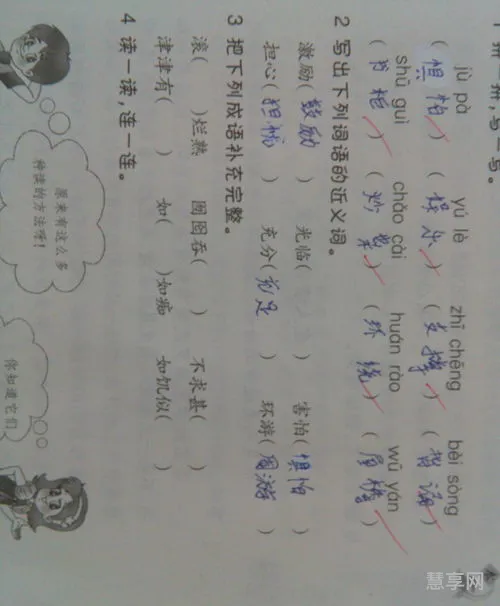 1 拼一拼,写一写。
jù pà yú lè zhī chēng bèi sòng
(惧怕) (娱乐) (支撑) (背诵)
shū guì chǎo cài huán rào wū yán
(书柜) (炒菜) (环绕) (屋檐)
2 写出下列词语的近义词。
激励(鼓励) 光临( ) 害怕(惧怕)
担心(担忧) 充分(充足) 环游(周游)
3 把下列成语补充完整。
滚( )烂熟 囫囵吞( ) 不求甚( )
津津有( ) 如( )如痴 如饥似( )
4 读一读,连一连。
原来有这么多
种读的方法呀!
你知道它们
慧享网